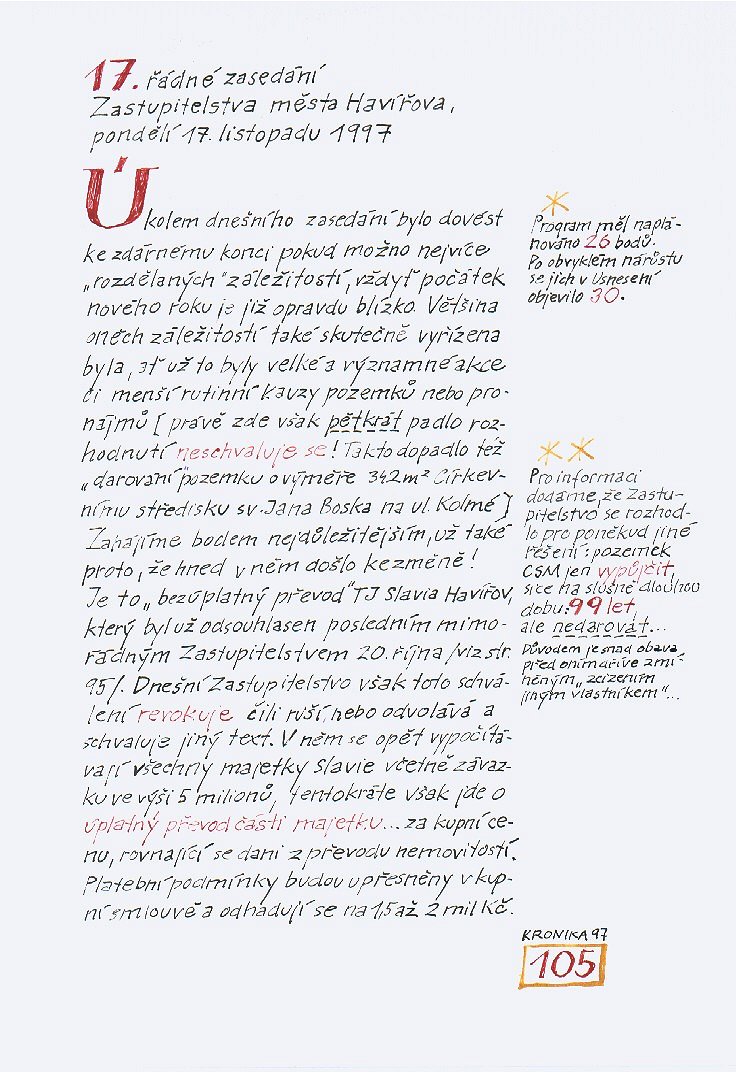 17. řádné zasedání
Zastupitelstva města Havířova,
pondělí 17. listopadu 1997
Úkolem dnešního zasedání bylo dovést
ke zdárnému konci pokud možno nejvíce
„rozdělaných" záležitostí, vždyť počátek
nového roku je již opravdu blízko. Většina
oněch záležitostí také skutečně vyřízena
byla, ať už to byly velké a významné akce
či menší rutinní kauzy pozemků nebo pro-
nájmů [právě zde však pětkrát padlo roz-
hodnutí neschvaluje se! Takto dopadlo též
„darování" pozemku o výměře 342 m² Církev-
nímu středisku sv. Jana Boska na ul. Kolmé]
Zahájíme bodem nejdůležitějším, už také
proto, že hned v něm došlo ke změně!
Je to „bezúplatný převod" TJ Slavia Havířov,
který byl už odsouhlasen posledním mimo-
řádným Zastupitelstvem 20. října /viz str.
95/. Dnešní Zastupitelstvo však toto schvá-
lení revokuje čili ruší, nebo odvolává a
schvaluje jiný text. V něm se opět vypočítá-
vají všechny majetky Slavie včetně závaz-
ku ve výši 5 milionů, tentokráte však jde o
úplatný převod části majetku... za kupní ce-
nu, rovnající se dani z převodu nemovitostí.
Platební podmínky budou upřesněny v kup-
ní smlouvě a odhadují se na 1,5 až 2 mil Kč.
*
Program měl naplá-
nováno 26 bodů.
Po obvyklém nárůstu
se jich v Usnesení
objevilo 30.
**
Pro informaci
dodáme, že Zastu-
pitelstvo se rozhod-
lo pro poněkud jiné
řešení: pozemek
CSM jen vypůjčit,
sice na slušně dlouhou
dobu: 99 let,
ale nedarovat...
Důvodem je snad obava
před oním dříve zmí-
něným „zcizením
jiným vlastníkem"...
KRONIKA 97
105